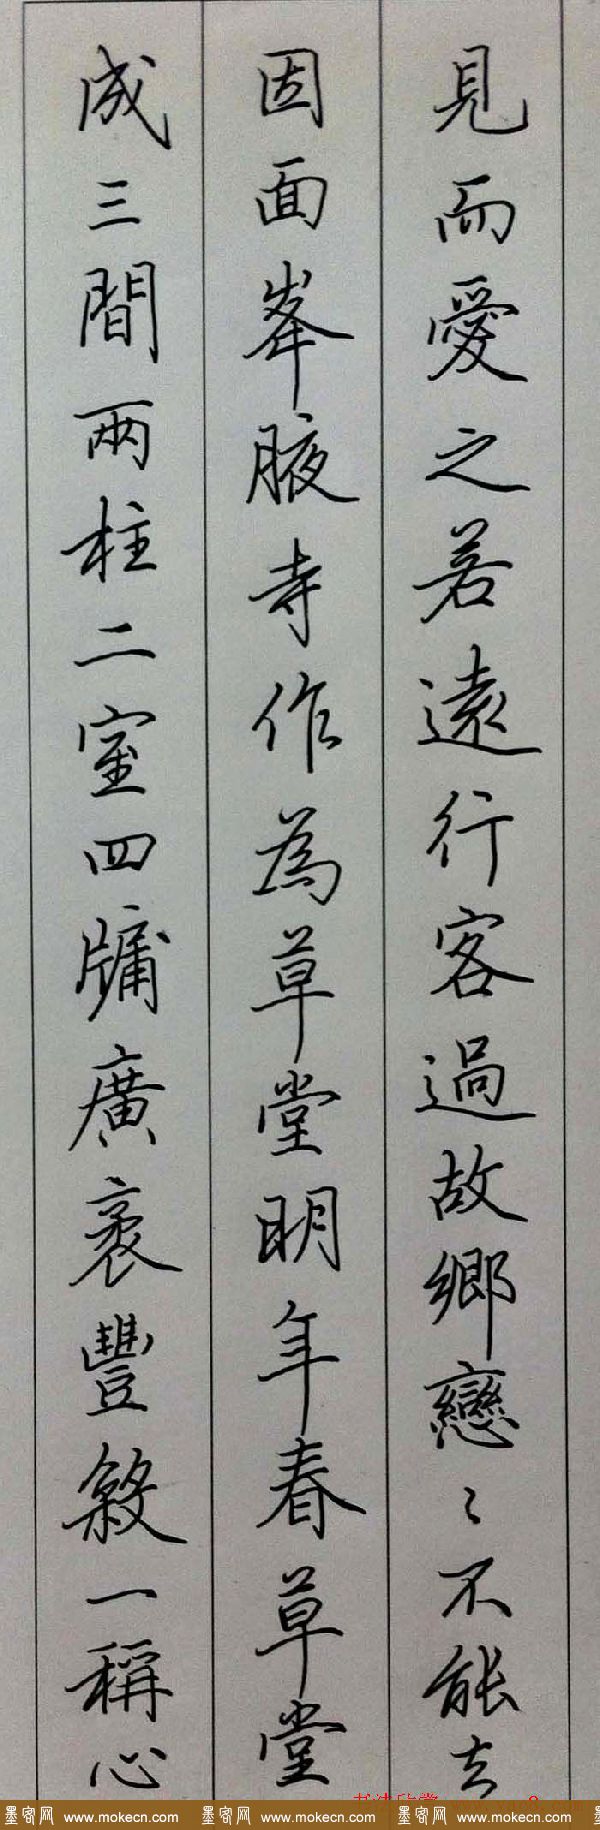 見而愛之若遠行客過故鄉戀〻不能去
因面峯腋寺作為草堂明年春草堂
成三間兩柱二室四牗廣袤豐殺一稱心
墨客网 www.mokecn.com 墨客网 www.mokecn.com 墨客网 www.mokecn.com